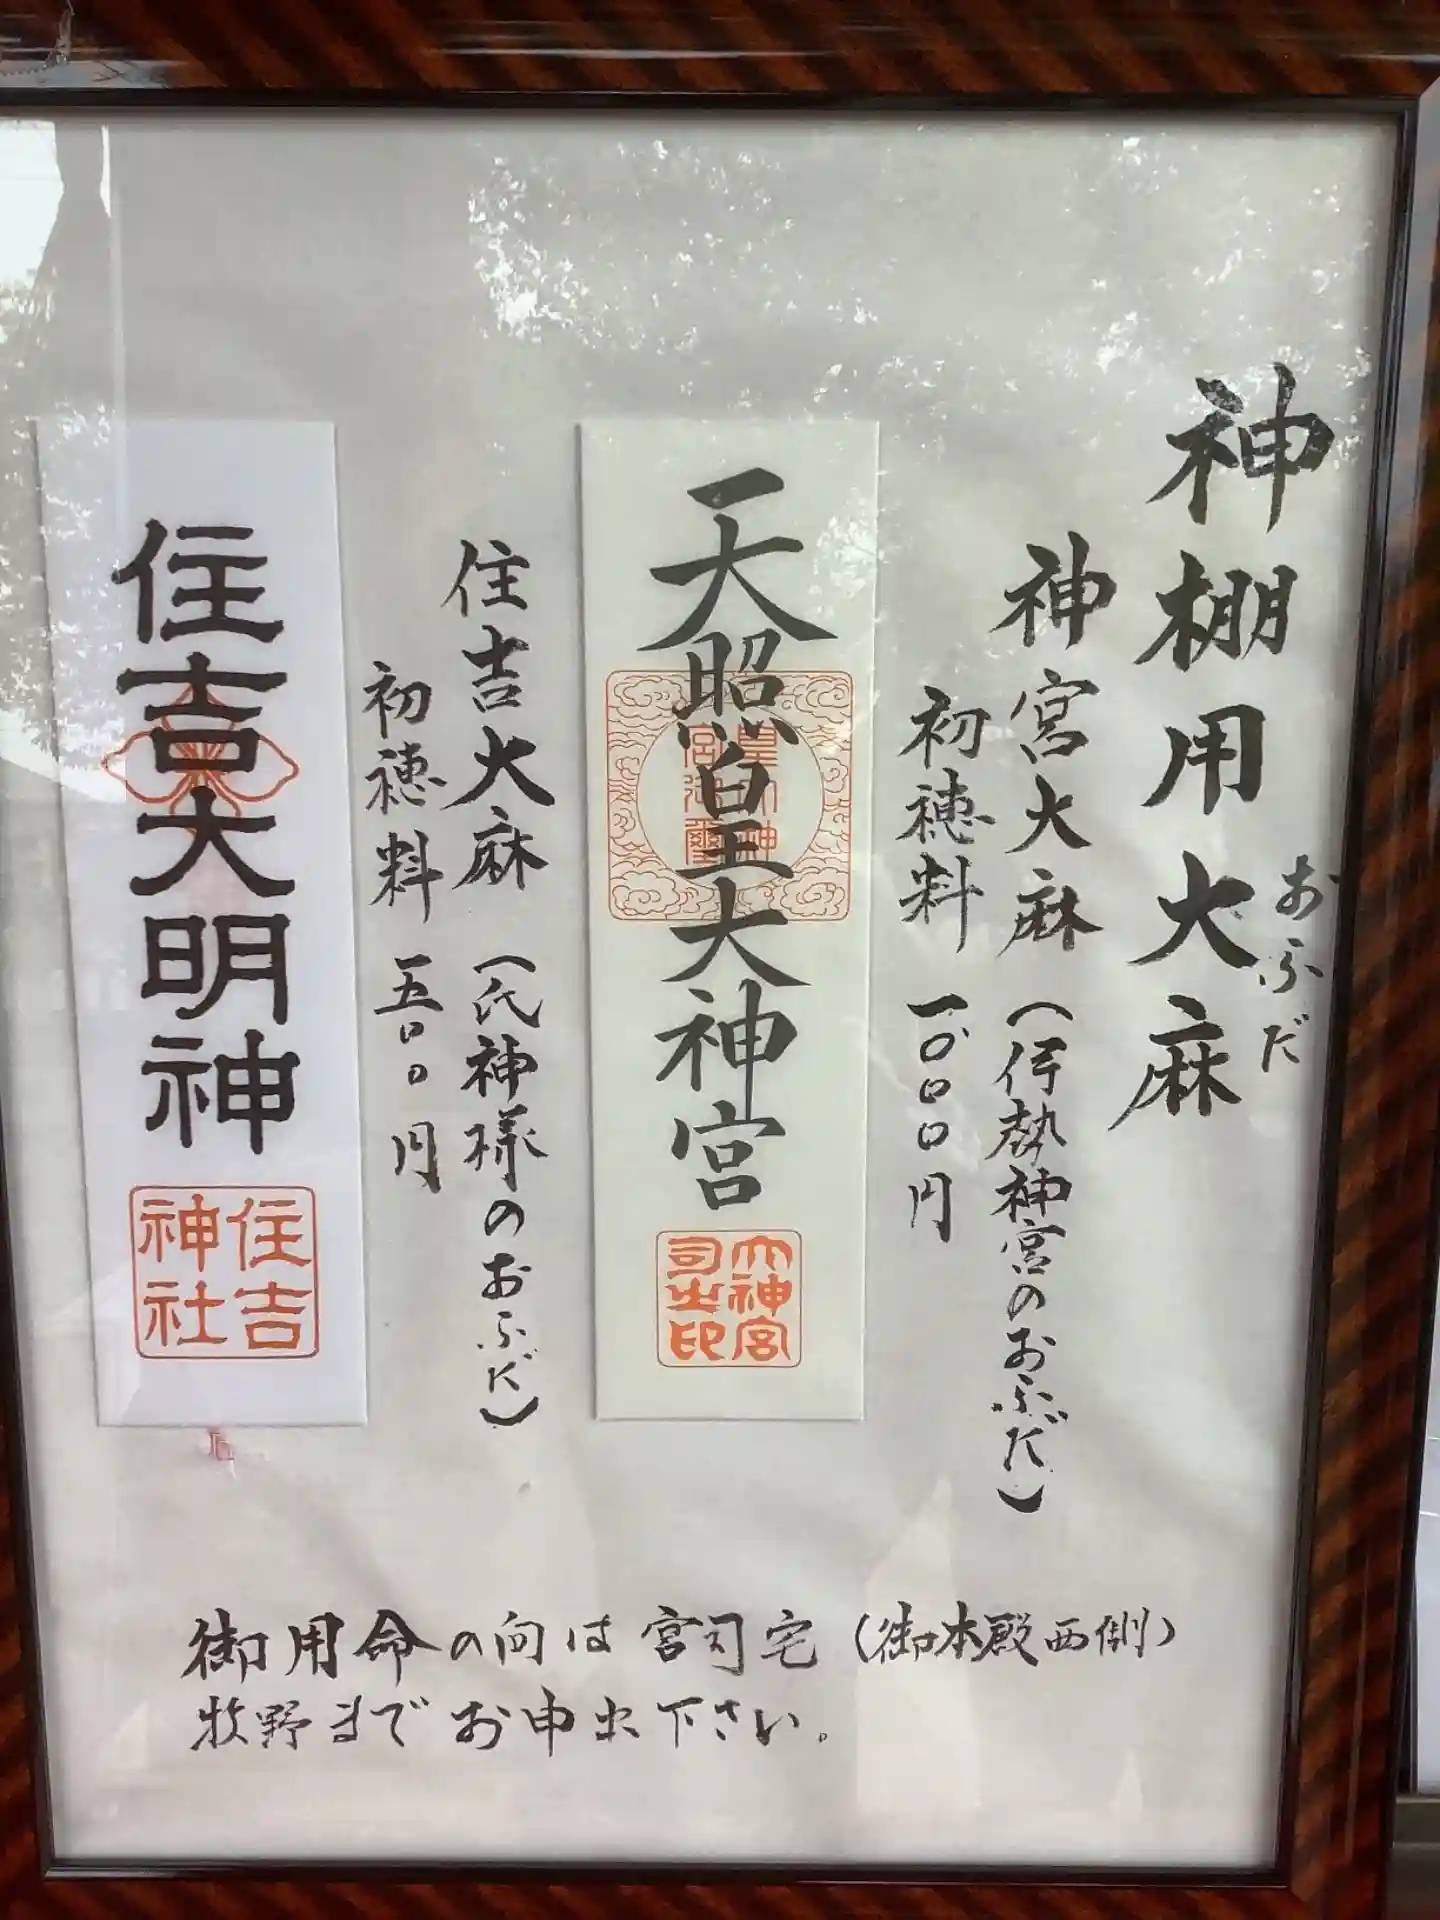 神棚用大麻
おふだ
神宮大麻（伊勢神宮のおふだ）
初穂料 一〇〇〇円
天照皇大神宮
皇大神
宮御璽
大神宮
司之印
住吉大麻（氏神様のおふだ）
初穂料 一五〇〇円
住吉大明神
住吉
神社
御用命の向は宮司宅（御本殿西側）
牧野までお申出下さい。